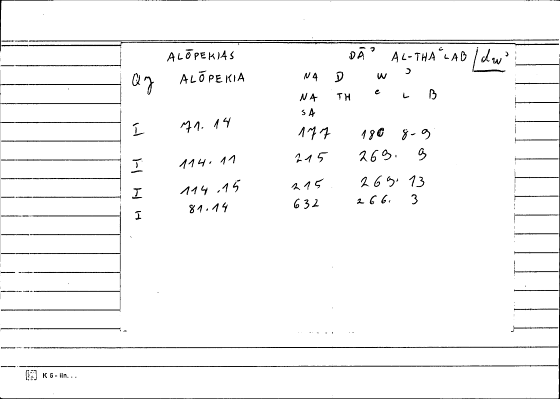 ALŌPEKIAS DĀʾ AL-THAʿLAB / dwʾ
Qz ALŌPEKIA NA D W ʾ
NA TH ʿ L B
SA
I 71.14 177 180 8-9
I 114.11 215 269. 9
I 114.15 215 269. 13
I 81.14 632 266. 3
K 6